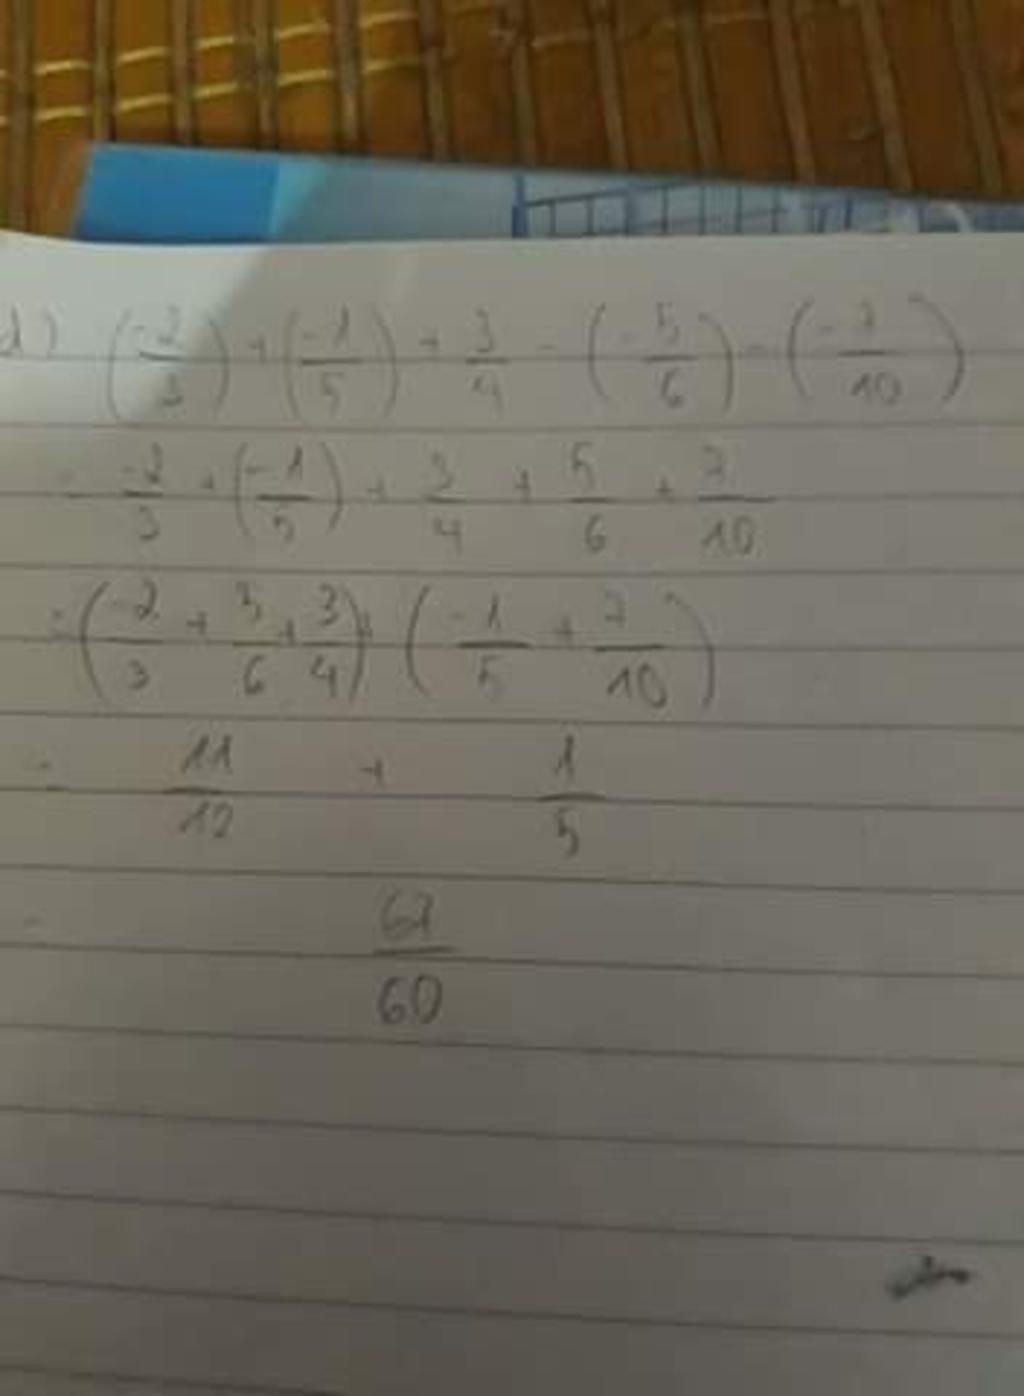 d) (-2/3) + (-1/5) + 3/4 - (-5/6) - (-7/10)
= -2/3 + (-1/5) + 3/4 + 5/6 + 7/10
= (-2/3 + 5/6 + 3/4) + (-1/5 + 7/10)
= 11/12 + 1/5
= 67/60